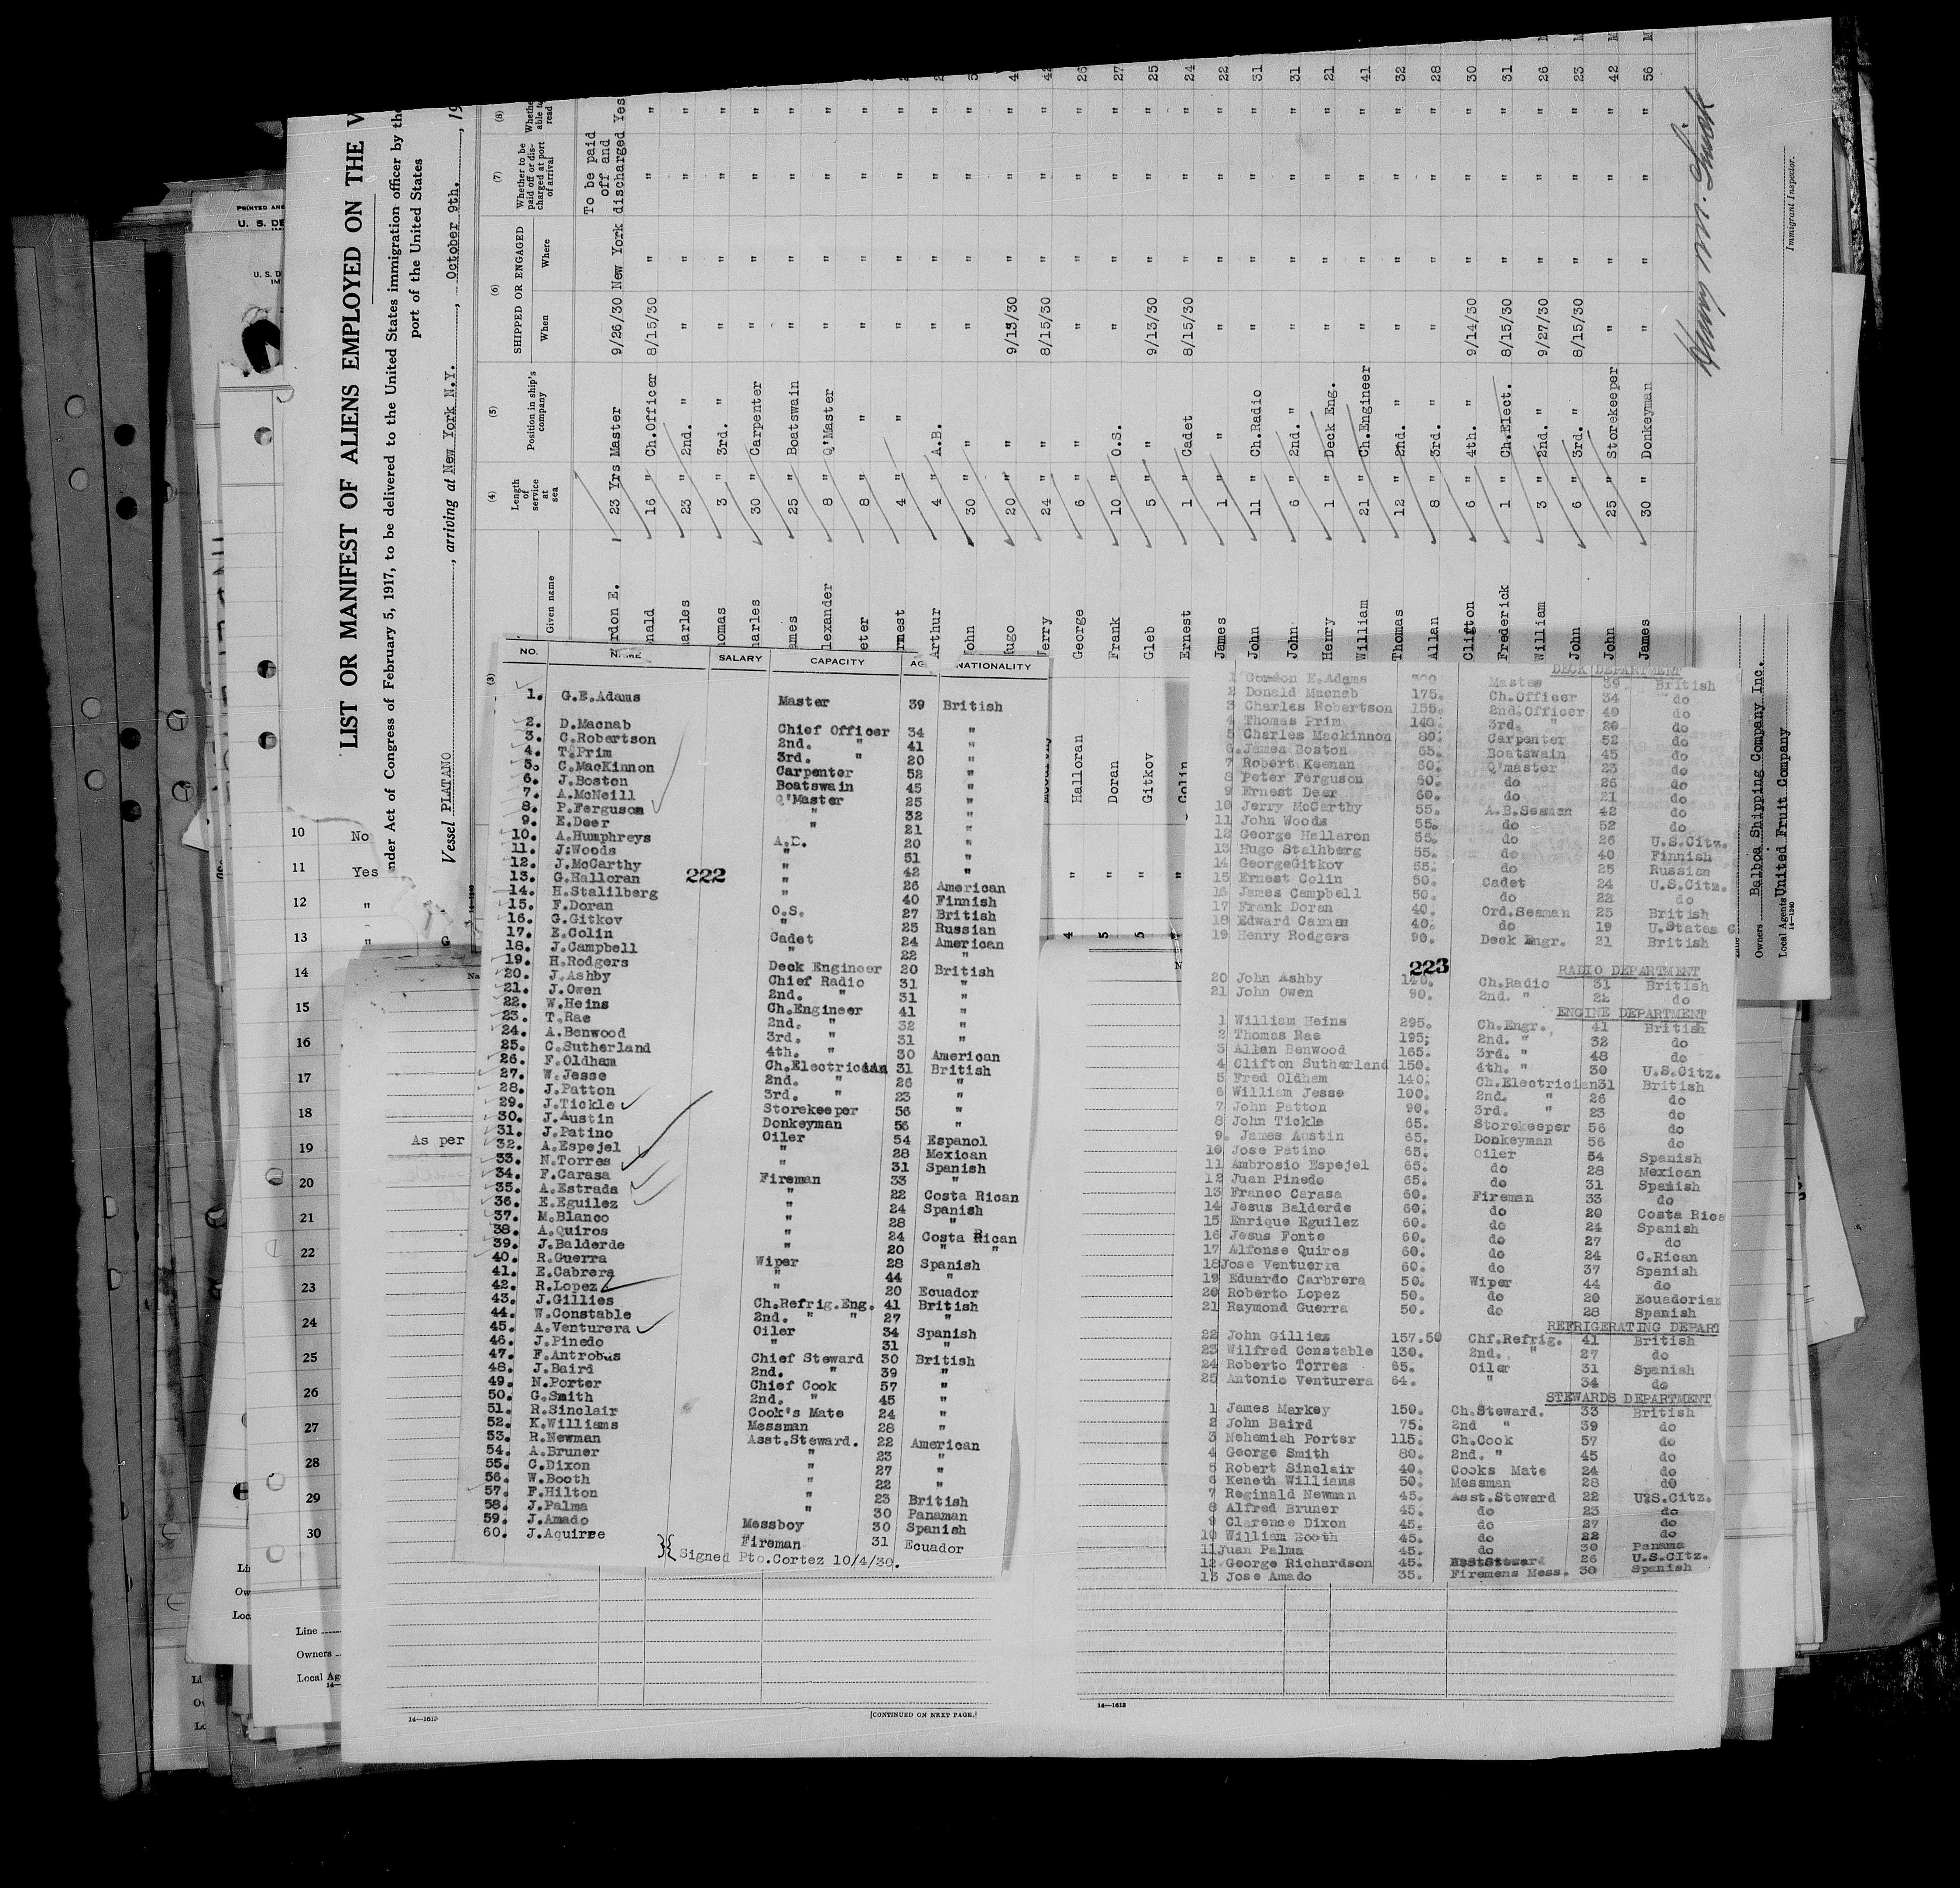 LIST OR MANIFEST OF ALIENS EMPLOYED ON THE V
nder Act of Congress of February 5, 1917, to be delivered to the United States immigration officer by the
port of the United States
Vessel PLATANO, arriving at New York N.Y., October 9th., 19
(3) Given name (4) Length of service at sea (5) Position in ship's company (6) SHIPPED OR ENGAGED When Where (7) Whether to be paid off or discharged at port of arrival (8) Whethe able to read
To be paid off and
rdon E. 23 Yrs Master 9/26/30 New York discharged Yes
nald 16 " Ch.Officer 8/15/30 " " "
harles 23 " 2nd. " " " " "
homas 3 " 3rd. " " " " "
harles 30 " Carpenter " " " "
ames 25 " Boatswain " " " "
lexander 8 " Q'Master " " " "
eter 8 " " " " " "
rnest 4 " " " " " "
Arthur 4 " A.B. " " " "
ohn 30 " " " " " "
ugo 20 " " 9/13/30 " " "
erry 24 " " 8/15/30 " " " 42
George 6 " " " " " " 26
Frank 10 " O.S. " " " " 27
Gleb 5 " " 9/13/30 " " " 25
Ernest 1 " Cadet 8/15/30 " " " 24
James 1 " " " " " " 22
John 11 " Ch.Radio " " " " 31
John 6 " 2nd. " " " " " 31
Henry 1 " Deck Eng. " " " " 21
William 21 " Ch.Engineer " " " " 41
Thomas 12 " 2nd. " " " " " 32
Allan 8 " 3rd. " " " " " 28
Clifton 6 " 4th. " 9/14/30 " " " 30
Frederick 1 " Ch.Elect. 8/15/30 " " " 31
William 3 " 2nd. " 9/27/30 " " " 26
John 6 " 3rd. " 8/15/30 " " " 23
John 25 " Storekeeper " " " " 42
James 30 " Donkeyman " " " " 56
Immigrant Inspector.
Halloran
Doran
Gitkov
Colin
Owners Balboa Shipping Company Inc.
Local Agents United Fruit Company
14—1240
NO. NAME SALARY CAPACITY AG NATIONALITY
1. G.E.Adams Master 39 British
2. D.Macnab Chief Officer 34 "
3. C.Robertson 2nd. " 41 "
4. T.Prim 3rd. " 20 "
5. C.MacKinnon Carpenter 52 "
6. J.Boston Boatswain 45 "
7. A.McNeill Q'Master 25 "
8. P.Ferguson " 32 "
9. E.Deer " 21 "
10. A.Humphreys A.B. 20 "
11. J.Woods " 51 "
12. J.McCarthy " 42 "
13. G.Halloran " 26 American
222
14. H.Stalilberg " 40 Finnish
15. F.Doran O.S. 27 British
16. G.Gitkov " 25 Russian
17. E.Colin Cadet 24 American
18. J.Campbell " 22 "
19. H.Rodgers Deck Engineer 20 British
20. J.Ashby Chief Radio 31 "
21. J.Owen 2nd. " 31 "
22. W.Heins Ch.Engineer 41 "
23. T.Rae 2nd. " 32 "
24. A.Benwood 3rd. " 31 "
25. C.Sutherland 4th. " 30 American
26. F.Oldham Ch.Electrician 31 British
27. W.Jesse 2nd. " 26 "
28. J.Patton 3rd. " 23 "
29. J.Tickle Storekeeper 56 "
30. J.Austin Donkeyman 56 "
31. J.Patino Oiler 54 Espanol
32. A.Espejel " 28 Mexican
33. N.Torres " 31 Spanish
34. F.Carasa Fireman 33 "
35. A.Estrada " 22 Costa Rican
36. E.Eguilez " 24 Spanish
37. M.Blanco " 28 "
38. A.Quiros " 24 Costa Rican
39. J.Balderde " 20 " "
40. R.Guerra Wiper 28 Spanish
41. E.Cabrera " 44 "
42. R.Lopez " 20 Ecuador
43. J.Gillies Ch.Refrig.Eng. 41 British
44. W.Constable 2nd. " " 27 "
45. A.Venturera Oiler 34 Spanish
46. J.Pinedo " 31 "
47. F.Antrobus Chief Steward 30 British
48. J.Baird 2nd. " 39 "
49. N.Porter Chief Cook 57 "
50. G.Smith 2nd. " 45 "
51. R.Sinclair Cook's Mate 24 "
52. K.Williams Messman 28 "
53. R.Newman Asst.Steward. 22 American
54. A.Bruner " 23 "
55. C.Dixon " 27 "
56. W.Booth " 22 "
57. F.Hilton " 23 British
58. J.Palma " 30 Panaman
59. J.Amado Messboy 30 Spanish
60. J.Aquirre Fireman 31 Ecuador
Signed Pto.Cortez 10/4/30.
DECK DEPARTMENT
1 Gordon E.Adams Master 39 British
2 Donald Macnab 175. Ch.Officer 34 do
3 Charles Robertson 155. 2nd.Officer 40 do
4 Thomas Prim 140. 3rd. " 20 do
5 Charles Mackinnon 80. Carpenter 52 do
6. James Boston 65. Boatswain 45 do
7 Robert Keenan 60. Q'master 23 do
8 Peter Ferguson 60. do 26 do
9 Ernest Deer 60. do 21 do
10 Jerry McCarthy 55. A.B.Seaman 42 do
11 John Woods 55. do 52 do
12 George Hallaron 55. do 26 U.S.Citz.
13 Hugo Stalhberg 55. do 40 Finnish
14 GeorgeGitkov 55. do 25 Russian
15 Ernest Colin 50. Cadet 24 U.S.Citz.
16 James Campbell 50. do 22 do
17 Frank Doran 40. Ord.Seaman 25 British
18 Edward Carman 40. do 19 U.States C
19 Henry Rodgers 90. Deck Engr. 21 British
223
RADIO DEPARTMENT
20 John Ashby 140. Ch.Radio 31 British
21 John Owen 90. 2nd. " 22 do
ENGINE DEPARTMENT
1 William Heins 295. Ch.Engr. 41 British
2 Thomas Rae 195; 2nd. " 32 do
3 Allan Benwood 165. 3rd. " 48 do
4 Clifton Sutherland 150. 4th. " 30 U.S.Citz.
5 Fred Oldham 140. Ch.Electrician31 British
6 William Jesse 100. 2nd. " 26 do
7 John Patton 90. 3rd. " 23 do
8 John Tickle 65. Storekeeper 56 do
9. James Austin 65. Donkeyman 56 do
10 Jose Patino 65. Oiler 54 Spanish
11 Ambrosio Espejel 65. do 28 Mexican
12 Juan Pinedo 65. do 31 Spanish
13 Franco Carasa 60. Fireman 33 do
14 Jesus Balderde 60. do 20 Costa Rica
15 Enrique Eguilez 60. do 24 Spanish
16 Jesus Fonte 60. do 27 do
17 Alfonse Quiros 60. do 24 C.Rican
18Jose Ventuerra 60. do 37 Spanish
19 Eduardo Carbrera 50. Wiper 44 do
20 Roberto Lopez 50. do 20 Ecuadorian
21 Raymond Guerra 50. do 28 Spanish
REFRIGERATING DEPART
22 John Gillies 157.50 Chf.Refrig. 41 British
23 Wilfred Constable 130. 2nd. " 27 do
24 Roberto Torres 65. Oiler 31 Spanish
25 Antonio Venturera 64. " 34 do
STEWARDS DEPARTMENT
1 James Markey 150. Ch.Steward. 33 British
2 John Baird 75. 2nd " 39 do
3 Nehemiah Porter 115. Ch.Cook 57 do
4 George Smith 80. 2nd. " 45 do
5 Robert Sinclair 40. Cooks Mate 24 do
6 Keneth Williams 50. Messman 28 do
7 Reginald Newman 45. Asst.Steward 22 U.S.Citz.
8 Alfred Bruner 45. do 23 do
9 Clarence Dixon 45. do 27 do
10 William Booth 45. do 22 do
11Juan Palma 45. do 30 Panama
12 George Richardson 45. 26 U.S.CItz.
13 Jose Amado 35. Firemens Mess. 30 Spanish
10 No
11 Yes
12 "
13 "
14
15
16
17
18
19
20
21
22
23
24
25
26
27
28
29
30
As per
Line
Owners
Local Ag
14—1613
[CONTINUED ON NEXT PAGE.]
14—1613